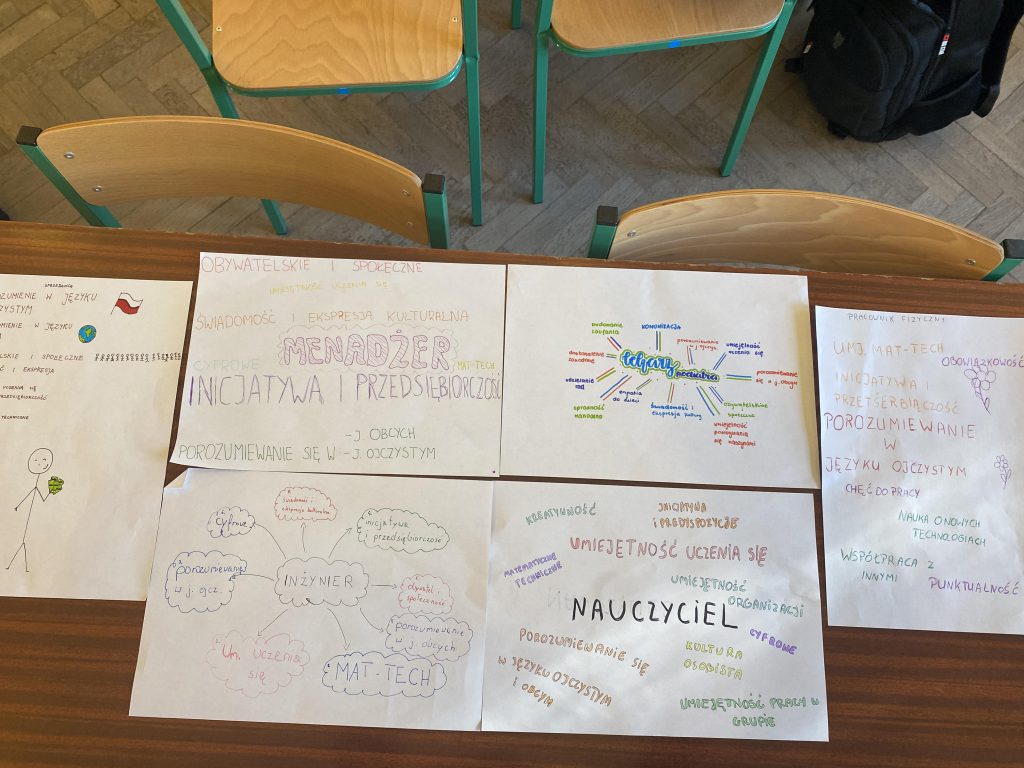 SPRZEDAWCA
ROZUMIENIE W JĘZYKU
CZYSTYM
MIENIE W JĘZYKU
LSKIE I SPOŁECZNE
Ć I EKSPRESJA
UCZENIA SIĘ
PRZEDSIĘBIORCZOŚĆ
TECHNICZNE
OBYWATELSKIE I SPOŁECZNE
UMIEJĘTNOŚĆ UCZENIA SIĘ
ŚWIADOMOŚĆ I EKSPRESJA KULTURALNA
MENADŻER
CYFROWE
MAT-TECH
INICJATYWA I PRZEDSIĘBIORCZOŚĆ
-J. OBCYCH
POROZUMIEWANIE SIĘ W -J. OJCZYSTYM
budowanie
zaufania
KOMUNIKACJA
porozumiewanie
w j. ojczys.
umiejętność
uczenia się
lekarz
pediatra
porozumiewanie
się w j. obcym
udzielanie
rad
empatia
do dzieci
sprawność
manualna
świadomość i
ekspresja kultury
obywatelskie
społeczne
umiejętność
posługiwania
się maszynami
PRACOWNIK FIZYCZNY
UMJ. MAT-TECH
OBOWIĄZKOWOŚĆ
INICJATYWA I
PRZETSIĘRBIĄCZOŚĆ
POROZUMIEWANIE
W
JĘZYKU OJCZYSTYM
CHĘĆ DO PRACY
NAUKA O NOWYCH
TECHNOLOGIACH
WSPÓŁPRACA Z
INNYMI
PUNKTUALNOŚĆ
świadomość i
ekspresja kulturalna
cyfrowe
inicjatywa
i przedsiębiorczość
porozumiewanie
w j. ojcz.
INŻYNIER
obywatel. i
społeczność
porozumiewanie
w j. obcych
Um. uczenia
się
MAT-TECH
KREATYWNOŚĆ
INICJATYWA
I PREDYSPOZYCJE
UMIEJĘTNOŚĆ UCZENIA SIĘ
MATEMATYCZNO
TECHNICZNE
UMIEJĘTNOŚĆ
ORGANIZACJI
NAUCZYCIEL
CYFROWE
POROZUMIEWANIE SIĘ
W JĘZYKU OJCZYSTYM
I OBCYM
KULTURA
OSOBISTA
UMIEJĘTNOŚĆ PRACY W
GRUPIE